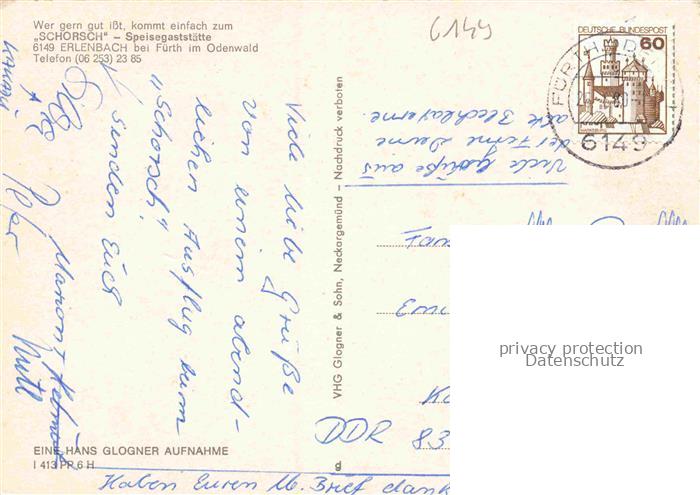 Wer gern gut ißt, kommt einfach zum
„SCHORSCH" – Speisegaststätte
6149 ERLENBACH bei Fürth im Odenwald
Telefon (06 253) 23 85
6149
DEUTSCHE BUNDESPOST
60
6149
Viele Grüße aus
der Ferne
alte
Viele liebe Grüße
von einem abend-
lichen Ausflug beim
„Schorsch"
senden Euch
Marion + Helmut
Peter
VHG Glogner & Sohn, Neckargemünd – Nachdruck verboten
DDR 83
EINE HANS GLOGNER AUFNAHME
I 413 PR 6 H
g
Haben Euren lb. Brief dank
privacy protection
Datenschutz